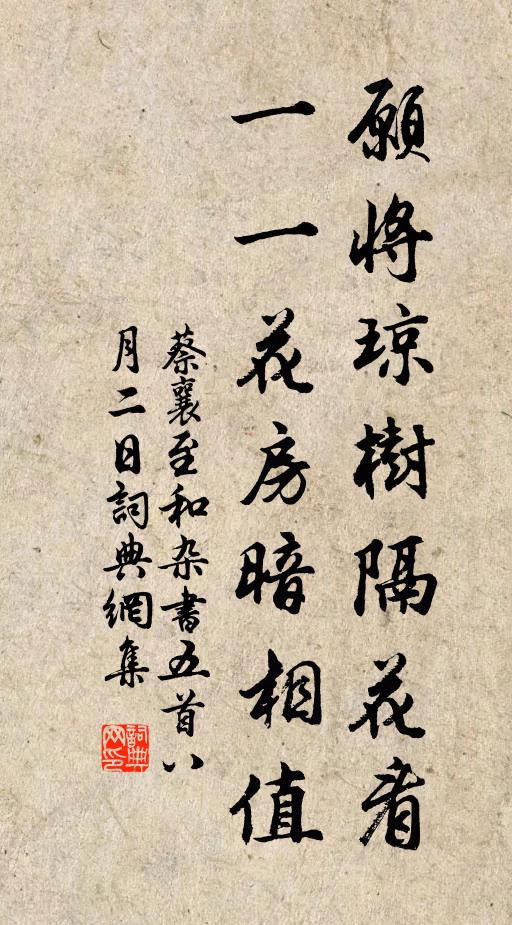 願將琼樹隔花看
一一花房暗相值
蔡襄至和杂書五首八
月二日詞典網集
詞典網印